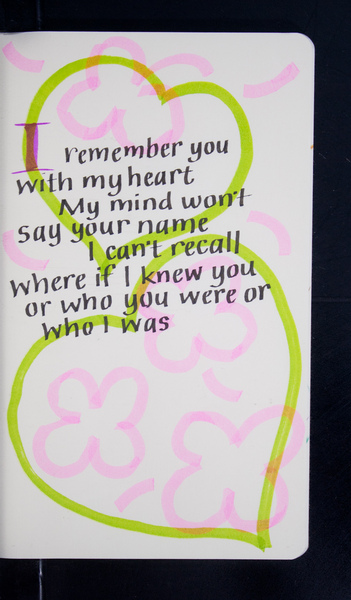 I remember you
with my heart
My mind won't
say your name
I can't recall
where if I knew you
or who you were or
who I was